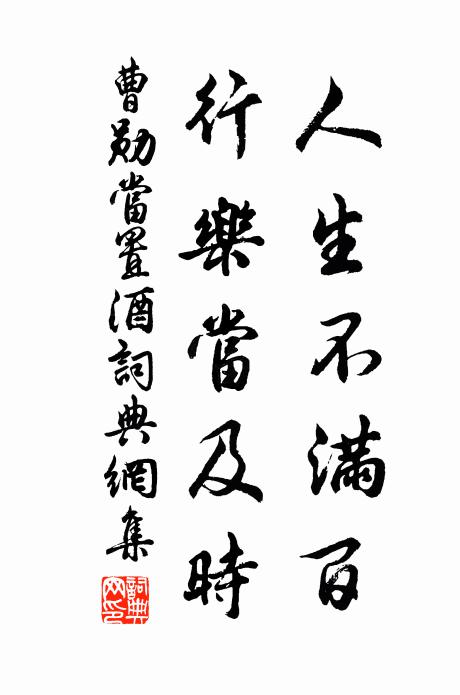 人生不滿百
行樂當及時
曹勛當置酒詞典網集
詞典網印